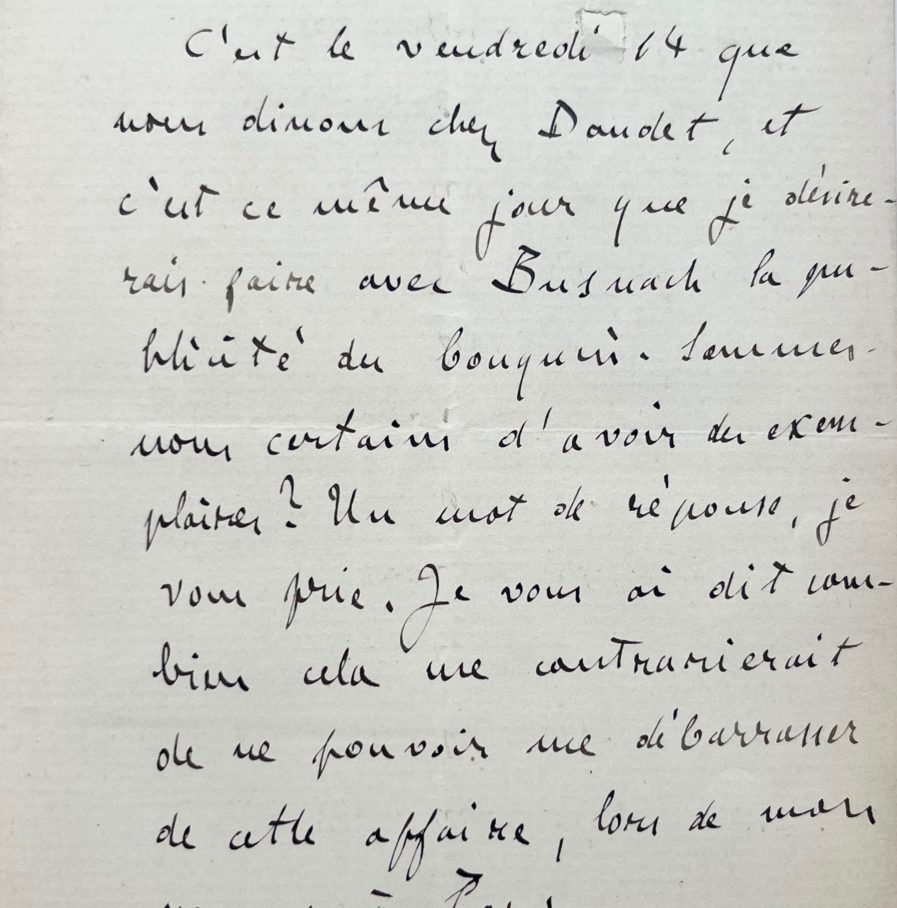 C'est le vendredi 14 que
nous dinons chez Daudet, et
c'est ce même jour que je désire-
rais faire avec Busnach la pu-
blicité du bouquin. Sommes-
nous certains d'avoir des exem-
plaires? Un mot de réponse, je
vous prie. Je vous ai dit com-
bien cela me contrarierait
de ne pouvoir me débarrasser
de cette affaire, lors de mon